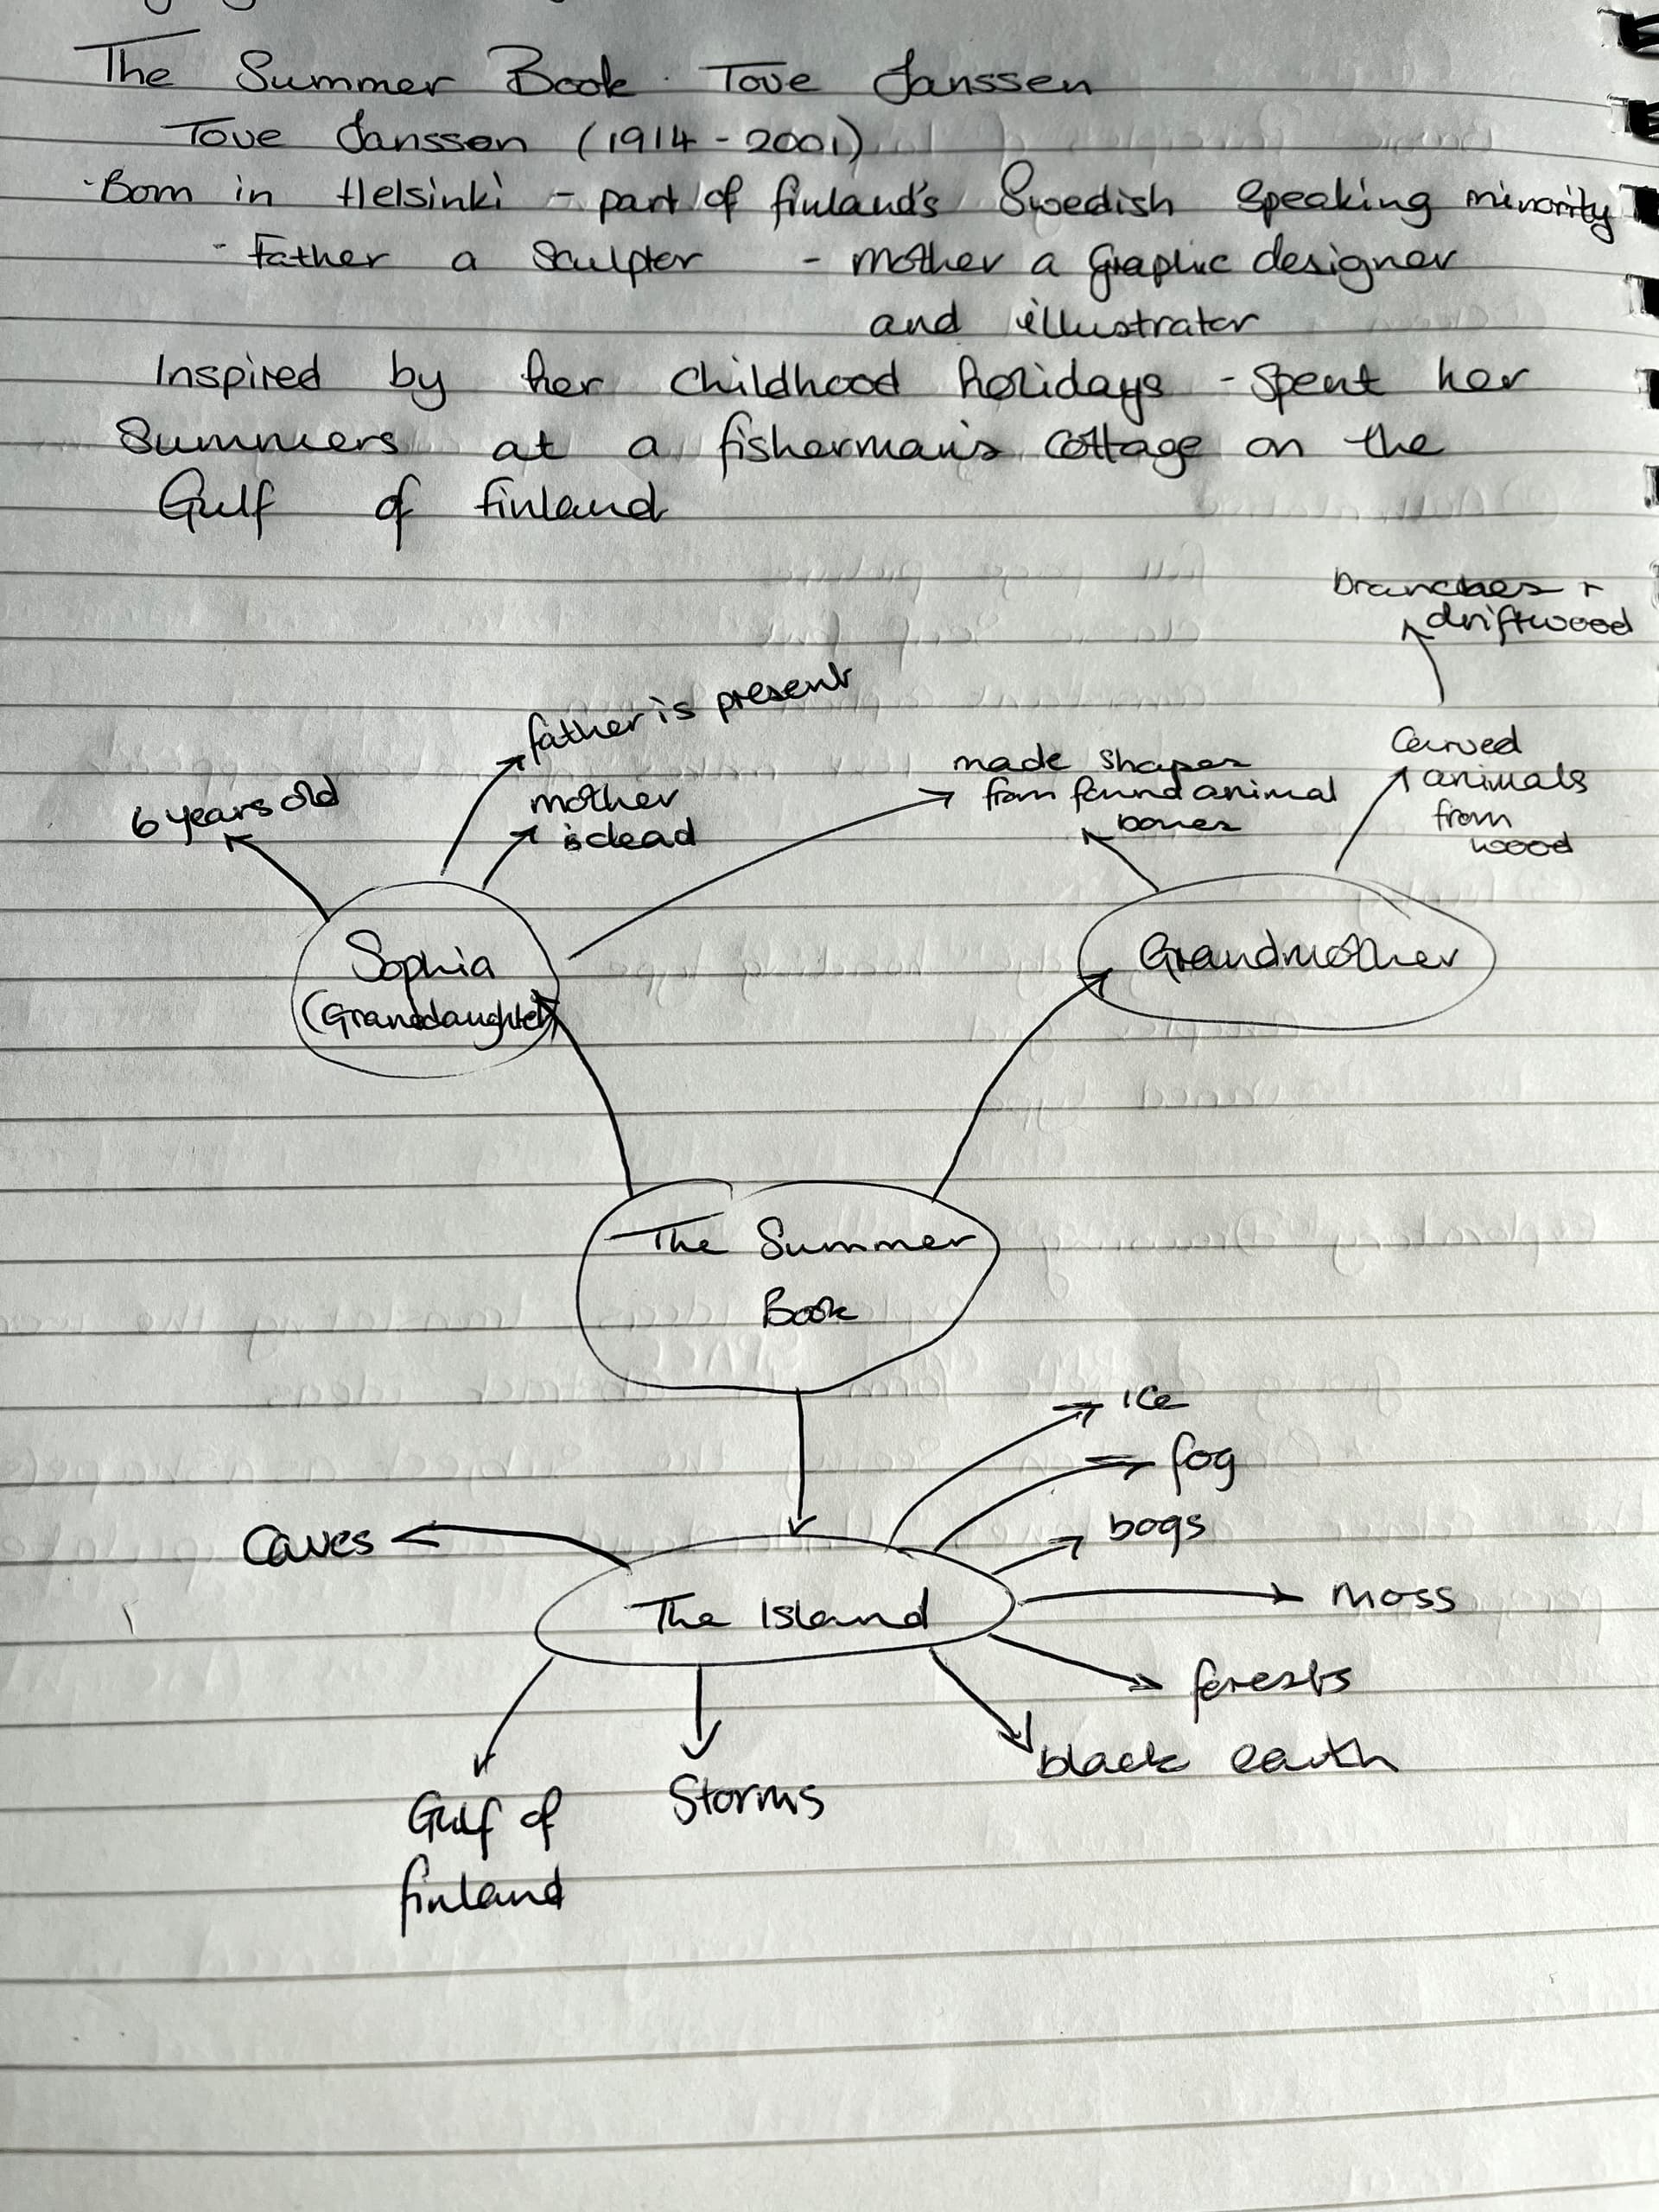 The Summer Book · Tove Janssen
Tove Jansson (1914 - 2001)
· Born in Helsinki - part of finland's Swedish Speaking minority
- Father a Sculptor - mother a Graphic designer
and illustrator
Inspired by her childhood holidays - spent her
Summers at a fisherman's cottage on the
Gulf of finland
branches +
driftwood
father is present
6 years old
mother
is dead
made shapes
from found animal
bones
Carved
animals
from
wood
Sophia
(Granddaughter)
Grandmother
The Summer
Book
ice
fog
bogs
Caves
The Island
moss
forests
black earth
Gulf of
finland
Storms